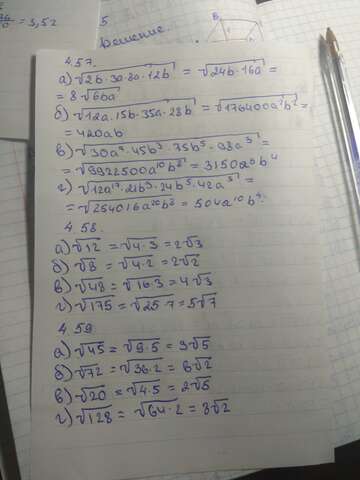 5
Решение.
4.57.
а) √2b·3a·8a·12b = √24b·16a =
= 8√6ba
б) √12a·15b·35a·28b = √176400a²b² =
= 420ab
в) √30a²·45b³·75b⁵·98a³ =
= √9922500a¹⁰b⁸ = 3150a⁵b⁴
г) √12a¹⁷·21b³·24b⁵·42a³ =
= √254016a²⁰b⁸ = 504a¹⁰b⁴.
4.58.
а) √12 = √4·3 = 2√3
б) √8 = √4·2 = 2√2
в) √48 = √16·3 = 4√3
г) √175 = √25·7 = 5√7
4.59
а) √45 = √9·5 = 3√5
б) √72 = √36·2 = 6√2
в) √20 = √4·5 = 2√5
г) √128 = √64·2 = 8√2